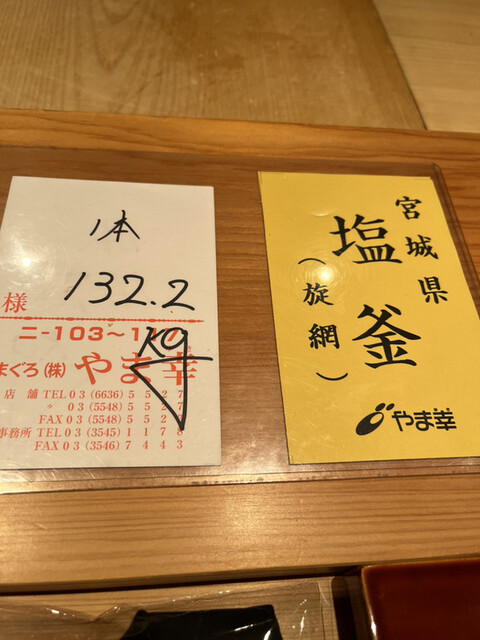 1本
132.2
kg
様
ニ-103～117
まぐろ(株)やま幸
店舗 TEL 03(6636)5527
〃 03(5548)552
FAX 03(5548)552
事務所 TEL 03(3545)1178
FAX 03(3546)7443
宮城県
塩釜
(旋網)
やま幸